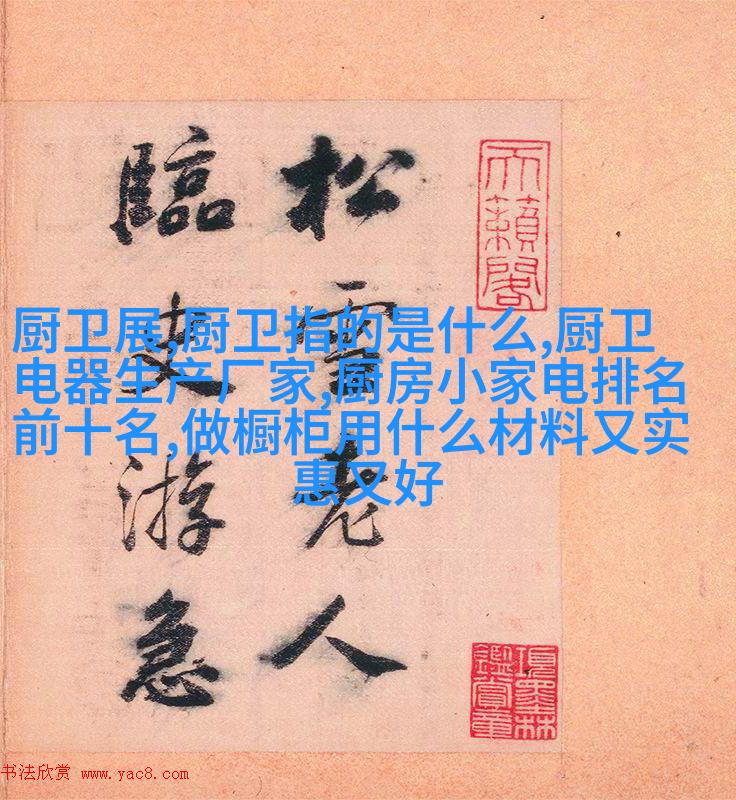 松雪老人
臨史游急
天籟閣
項墨林
鑑賞章
厨卫展,厨卫指的是什么,厨卫
电器生产厂家,厨房小家电排名
前十名,做橱柜用什么材料又实
惠又好
书法欣赏 www.yac8.com